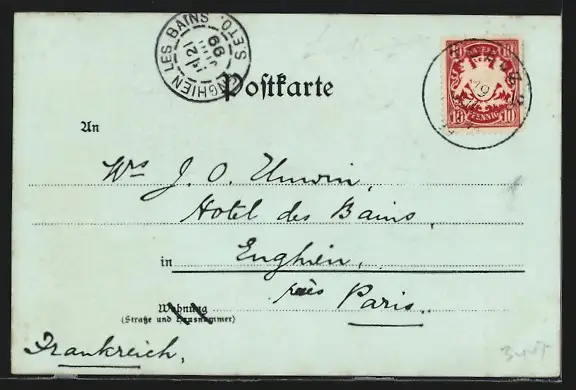 ENGHIEN LES BAINS S.ET O.
21
99
Postkarte
BAYERN
10 PFENNIG 10
19
An
Mrs J. O. Unwin,
Hotel des Bains,
in Enghien,
près Paris.
Wohnung
(Straße und Hausnummer)
Frankreich,